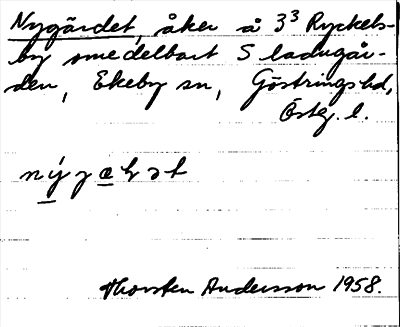 Nygärdet, åker å 3³ Ryckels-
by omedelbart S ladugår-
den, Ekeby sn, Göstringshd,
Östg. l.
Thorsten Andersson 1958.